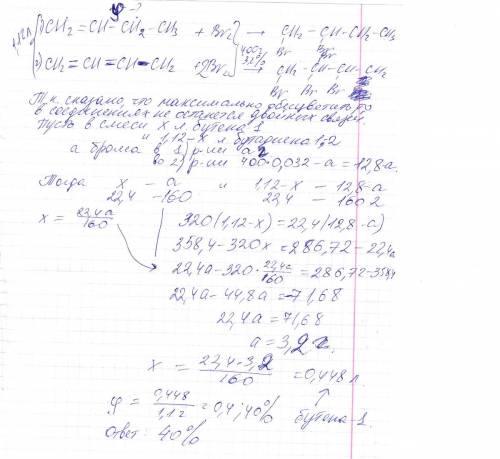 φ-?
1,12л 1) CH₂ = CH - CH₂ - CH₃ + Br₂ → CH₂ - CH - CH₂ - CH₃
Br Br
400г 3,2%
2) CH₂ = CH = CH - CH₂ + 2Br₂ → CH₂ - CH - CH - CH₂
Br Br Br Br
Т.к. сказано, что максимально обесцветить, то
в соединениях не останется двойных связей.
Пусть в смеси x л бутена 1
" 1,12-x л бутадиена 1,2
а брома в 1) р-ии а г
во 2) р-ии 400·0,032 - а = 12,8-а.
Тогда x - а " 1,12-x - 12,8-а
22,4 - 160 22,4 - 160·2
x = 22,4а/160 320(1,12-x) = 22,4(12,8-а)
358,4 - 320x = 286,72 - 22,4а
22,4а - 320·22,4а/160 = 286,72 - 358,4
22,4а - 44,8а = -71,68
22,4а = 71,68
а = 3,2 г.
x = 22,4·3,2/160 = 0,448 л
φ = 0,448/1,12 = 0,4; 40% бутена-1.
Ответ: 40%